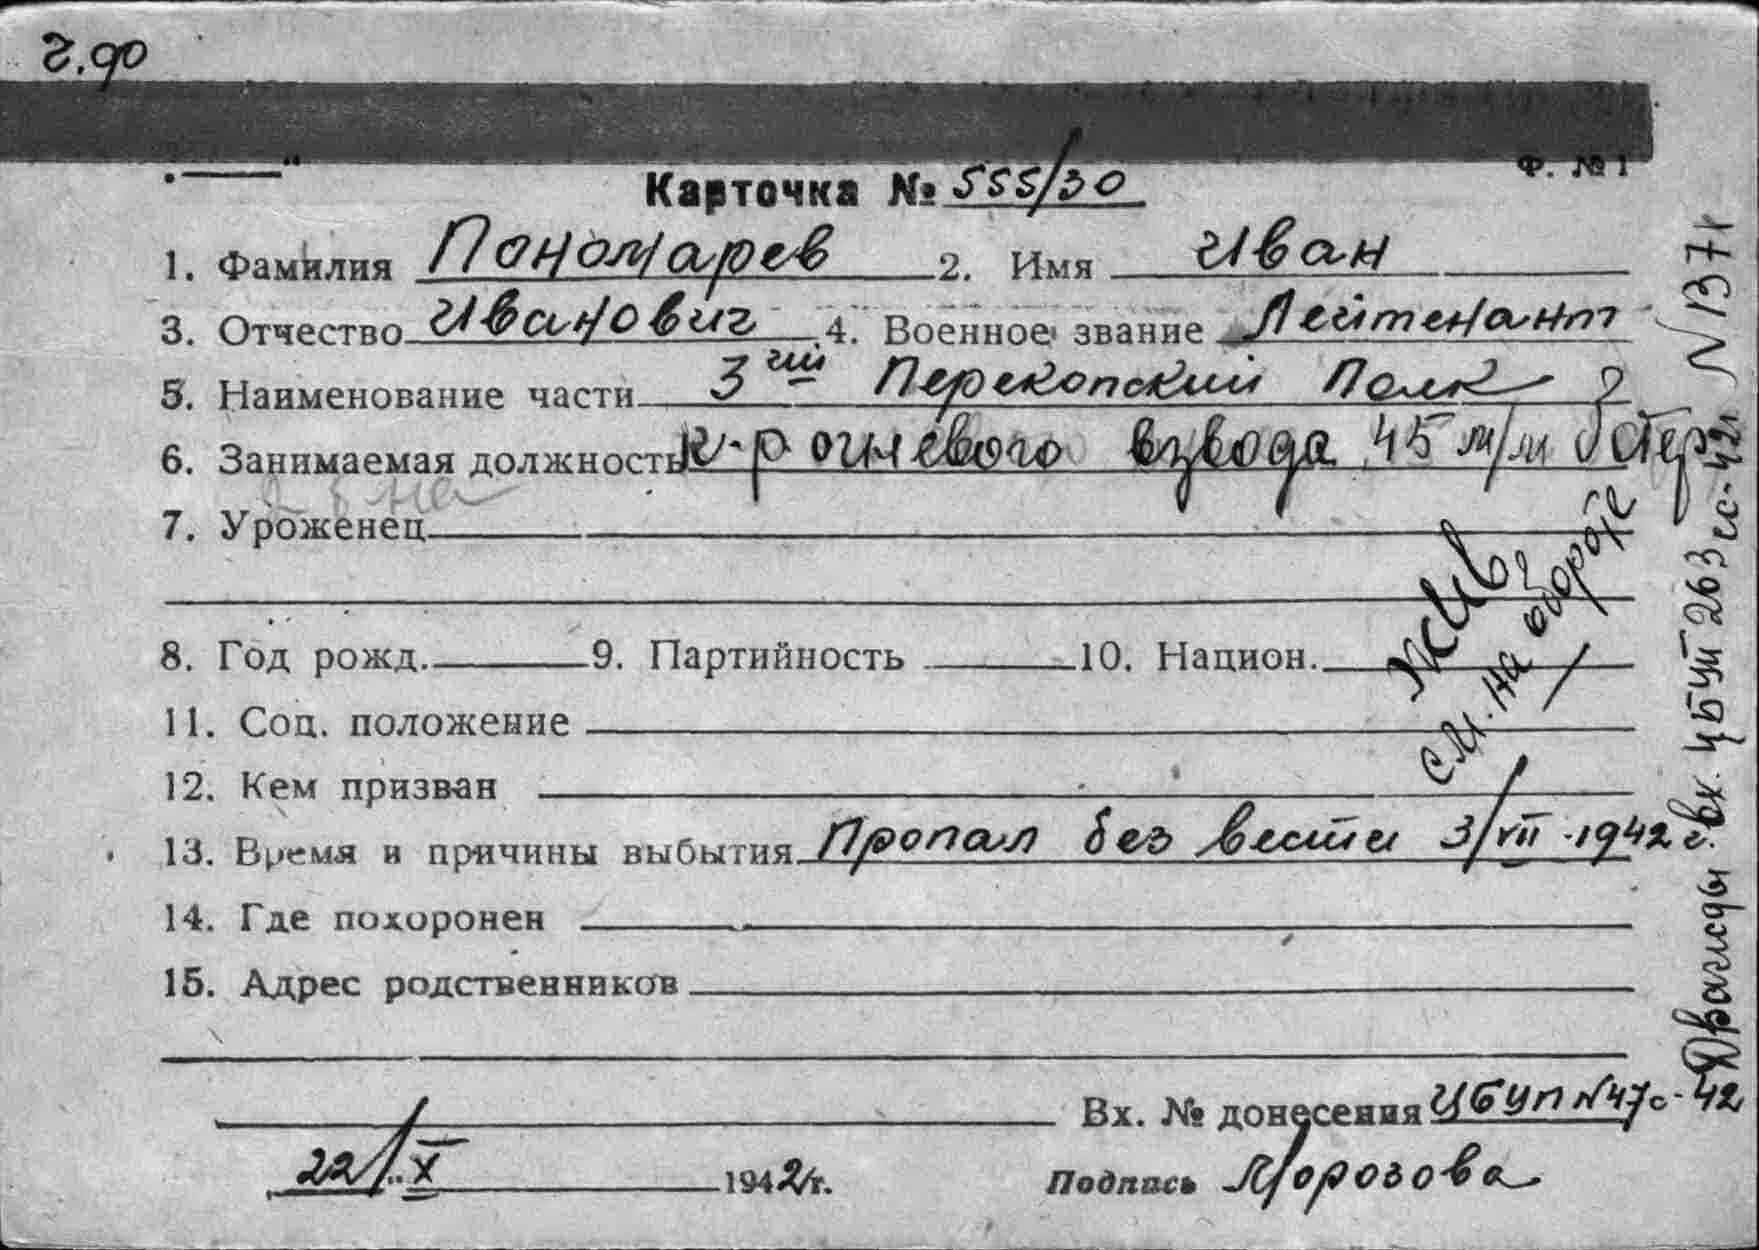 Ф. № 1
Карточка № 555/30
1. Фамилия Пономарев 2. Имя Иван
3. Отчество Иванович 4. Военное звание Лейтенант
5. Наименование части 3ий Перекопский Полк
6. Занимаемая должность к-р огневого взвода 45 м/м батер
7. Уроженец
8. Год рожд. 9. Партийность 10. Национ.
Жив
см. на обороте
11. Соц. положение
12. Кем призван
13. Время и причины выбытия Пропал без вести 3/VII-1942 г.
14. Где похоронен
15. Адрес родственников
Вх. № донесения ЦБУП №47с-42
22/X 1942 г.
Подпись Морозова
Дважды вх. ЦБУП 263сс-42г N 1371